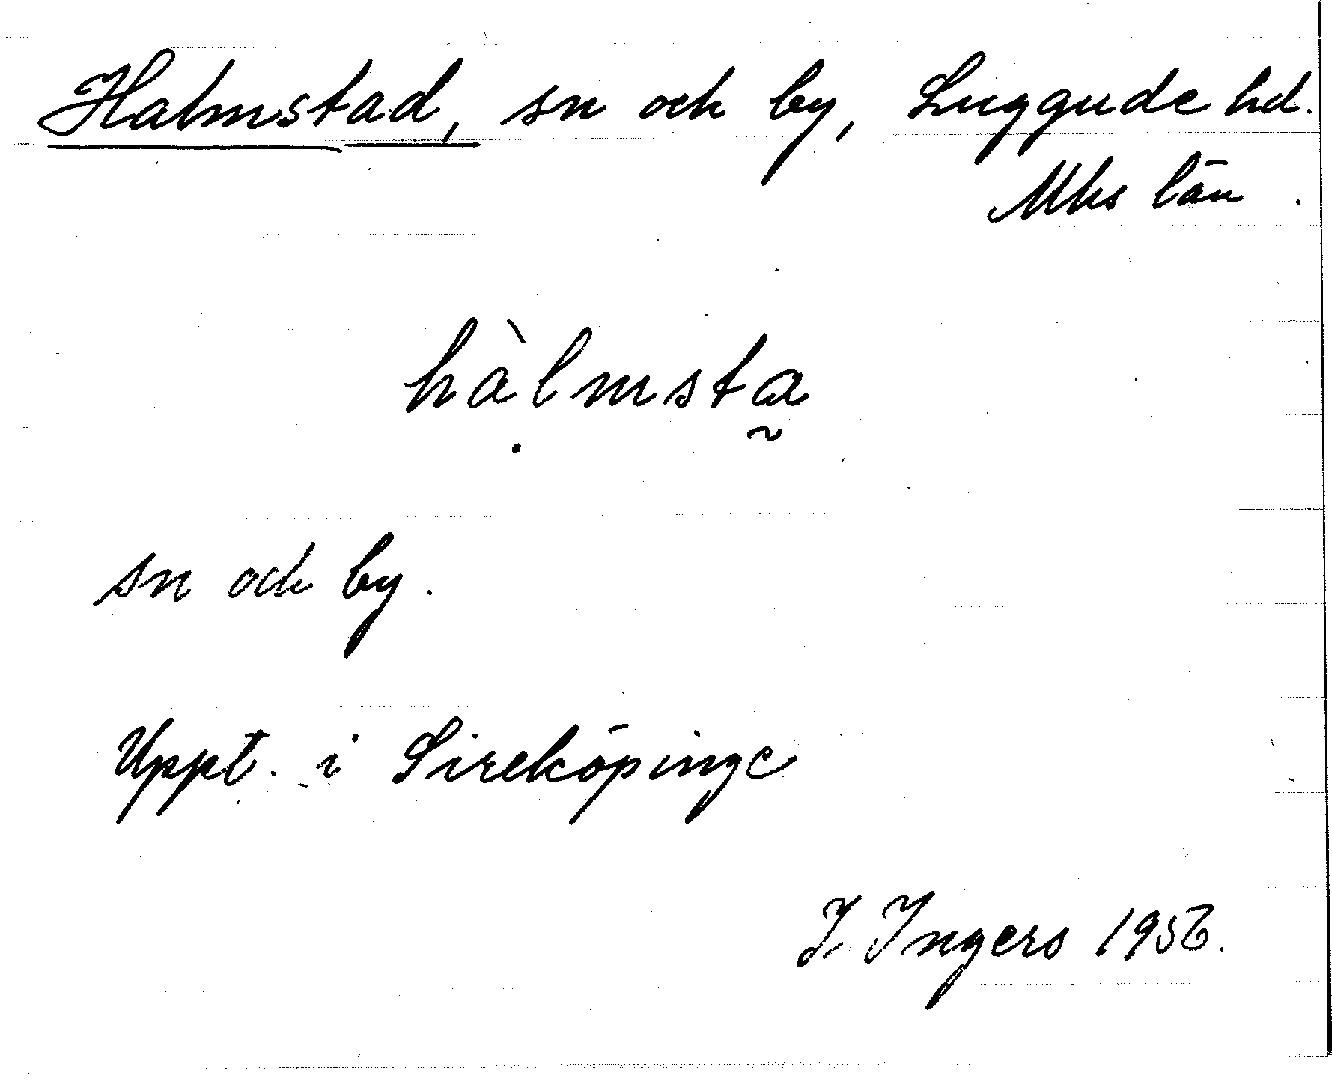 Halmstad, sn och by, Luggude hd.
Mhs län.
hàlmsta
sn och by.
Uppt. i Sireköpinge
I. Ingers 1956.